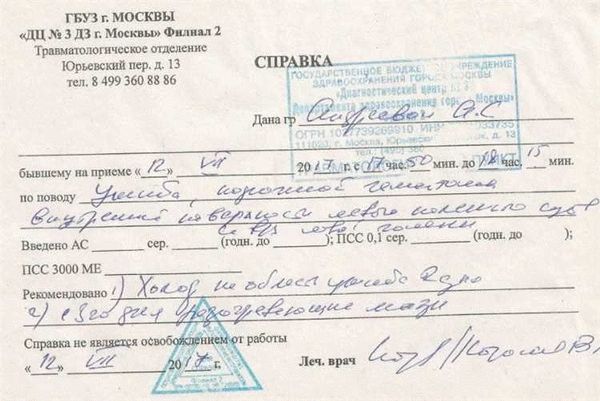 ГБУЗ г. МОСКВЫ
«ДЦ № 3 ДЗ г. Москвы» Филиал 2
Травматологическое отделение
Юрьевский пер. д. 13
тел. 8 499 360 88 86
СПРАВКА
ГОСУДАРСТВЕННОЕ БЮДЖЕТНОЕ УЧРЕЖДЕНИЕ
ЗДРАВООХРАНЕНИЯ ГОРОДА МОСКВЫ
«Диагностический центр № 3
Департамента здравоохранения города Москвы»
Дана гр
111020, г. Москва, Юрьевский пер. д. 13
бывшему на приеме «12» VII 2017 г. с 17 час. 50 мин. до 18 час. 15 мин.
по поводу Ушиба, подкожной гематомы
внутренней поверхности левого коленного
с в/з левой голени
Введено АС сер. (годн. до ); ПСС 0,1 сер. (годн. до );
ПСС 3000 МЕ
Рекомендовано 1) Холод на область ушиба
2) разогревающие мази
Справка не является освобождением от работы
«12» VII 2017 г.
Филиал 2
Леч. врач